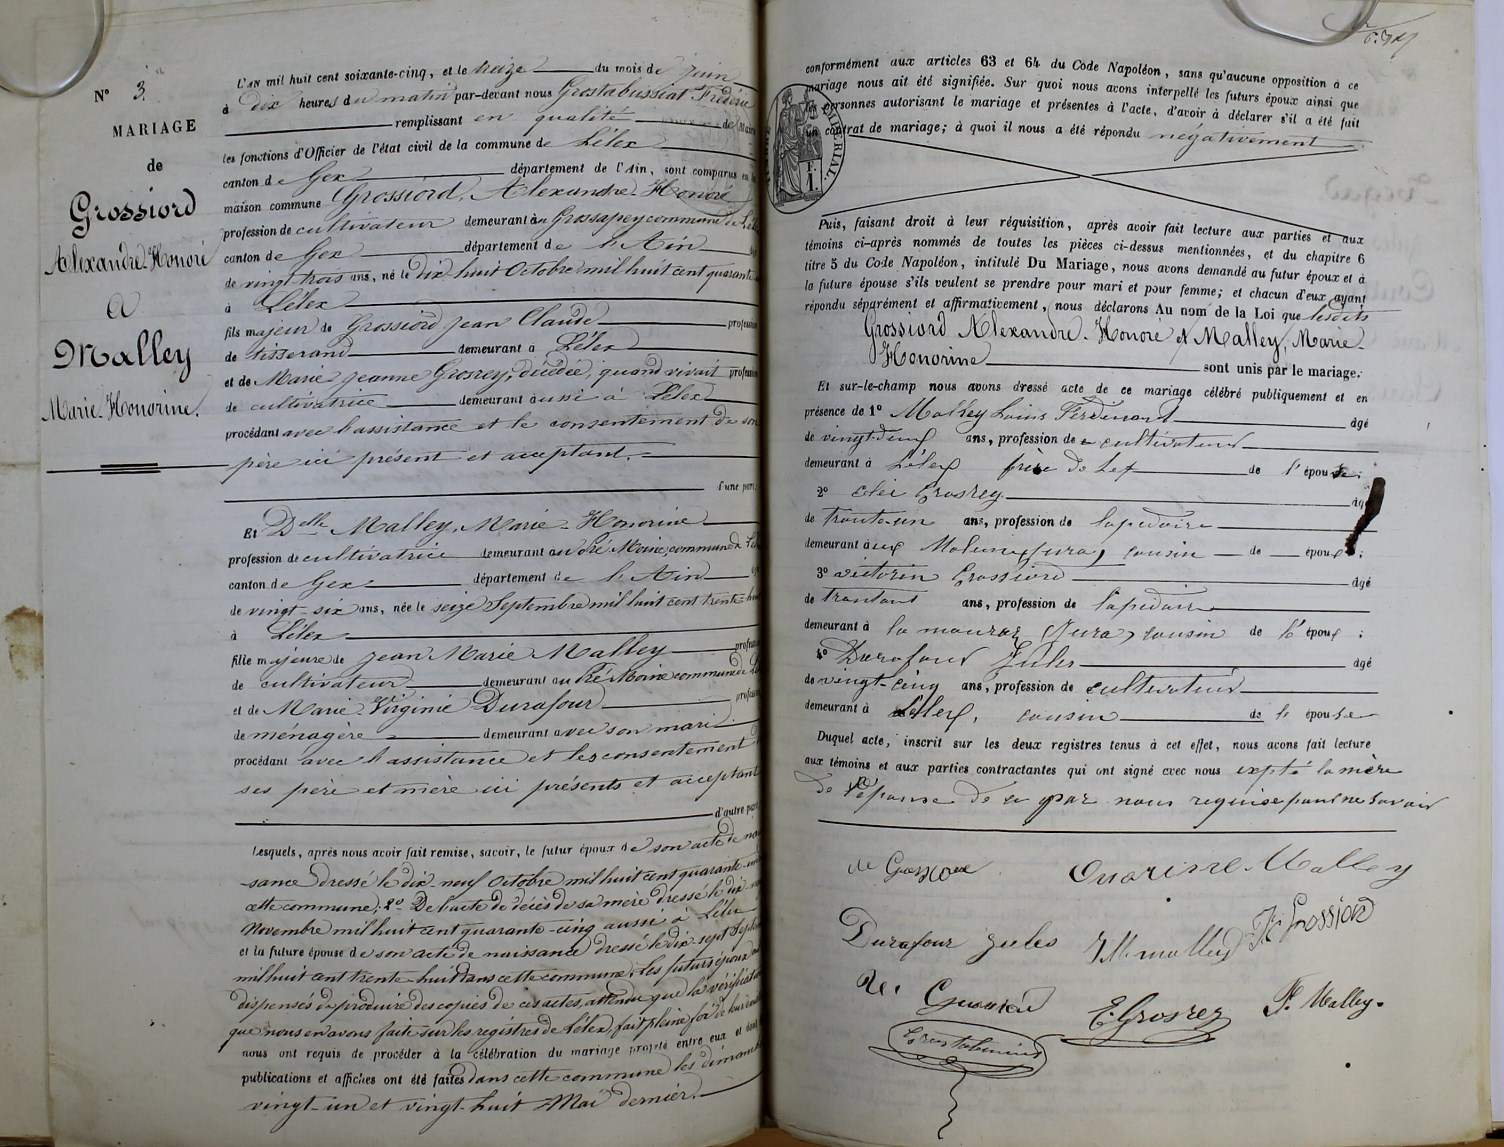 N° 3.
MARIAGE
de
Grossiord
Alexandre Honoré
&
Malley
Marie-Honorine.
L'AN mil huit cent soixante-cinq, et le treize du mois de juin
à dix heures du matin par-devant nous Grostabussiat Frédéric
remplissant en qualité de Maire
les fonctions d'Officier de l'état civil de la commune de Lélex
canton de Gex département de l'Ain, sont comparus en la
maison commune Grossiord, Alexandre-Honoré
profession de cultivateur demeurant à Grossapey commune de Lélex
canton de Gex département de l'Ain
de vingt trois ans, né le dix huit Octobre mil huit cent quarante
à Lélex
fils majeur de Grossiord Jean Claude profession
de tisserand demeurant à Lélex
et de Marie Jeanne Grosrey, décédée, quand vivait profession
de cultivatrice demeurant aussi à Lélex
procédant avec l'assistance et le consentement de son
père ici présent et acceptant.
d'une part;
Et Delle Malley, Marie-Honorine
profession de cultivatrice demeurant au Pré Moine, commune de
canton de Gex département de l'Ain
de vingt-six ans, née le seize Septembre mil huit cent trente-huit
à Lélex
fille majeure de Jean Marie Malley profession
de cultivateur demeurant au Pré Moine commune de
et de Marie Virginie Durafour profession
de ménagère demeurant avec son mari
procédant avec l'assistance et les consentement
ses père et mère ici présents et acceptant
d'autre part
Lesquels, après nous avoir fait remise, savoir, le futur époux de son acte de nais
sance dressé le dix-neuf Octobre mil huit cent quarante-un
cette commune; 2° De l'acte de décès de sa mère dressé le dix
Novembre mil huit cent quarante-cinq aussi à Lélex
et la future épouse de son acte de naissance dressé le dix-sept Septembre
mil huit cent trente-huit dans cette commune, les futurs époux
dispensés de produire des copies de ces actes, attendu que la vérification
que nous en avons faite sur les registres de Lélex, fait pleine foi de leur
nous ont requis de procéder à la célébration du mariage projeté entre eux et dont
publications et affiches ont été faites dans cette commune les dimanches
vingt-un et vingt-huit Mai dernier.
conformément aux articles 63 et 64 du Code Napoléon, sans qu'aucune opposition à ce
mariage nous ait été signifiée. Sur quoi nous avons interpellé les futurs époux ainsi que
les personnes autorisant le mariage et présentes à l'acte, d'avoir à déclarer s'il a été fait
un contrat de mariage; à quoi il nous a été répondu négativement
IMPERIAL.
F.
1.
Puis, faisant droit à leur réquisition, après avoir fait lecture aux parties et aux
témoins ci-après nommés de toutes les pièces ci-dessus mentionnées, et du chapitre 6
titre 5 du Code Napoléon, intitulé Du Mariage, nous avons demandé au futur époux et à
la future épouse s'ils veulent se prendre pour mari et pour femme; et chacun d'eux ayant
répondu séparément et affirmativement, nous déclarons Au nom de la Loi que lesdits
Grossiord Alexandre-Honoré et Malley, Marie-
Honorine sont unis par le mariage.
Et sur-le-champ nous avons dressé acte de ce mariage célébré publiquement et en
présence de 1° Malley Louis Ferdinand âgé
de vingt-deux ans, profession de cultivateur
demeurant à Lélex frère de l'épouse;
2° Grosrey âgé
de trente-un ans, profession de lapidaire
demeurant aux Molunes (Jura) cousin de époux;
3° victorin Grossiord âgé
de ans, profession de lapidaire
demeurant à la (Jura) cousin de l'époux;
4° Durafour Jules âgé
de vingt-cinq ans, profession de cultivateur
demeurant à Lélex, cousin de l'épouse
Duquel acte, inscrit sur les deux registres tenus à cet effet, nous avons fait lecture
aux témoins et aux parties contractantes qui ont signé avec nous expté la mère
de l'épouse de ce par nous requise pour ne savoir
Onorine Malley
Durafour jules
J M malley
Grossiord
Grossiord
E. Grosrey
F. Malley.